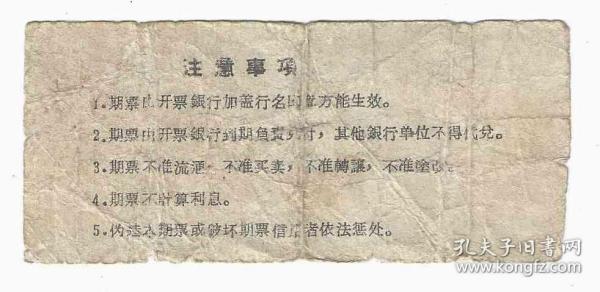 注意事項
1.期票由开票銀行加盖行名 方能生效。
2.期票由开票銀行到期負責 付，其他銀行单位不得代兑。
3.期票不准流 ，不准买卖，不准轉讓，不准塗改。
4.期票不計算利息。
5.伪造本期票或破坏期票信 者依法惩处。
孔夫子旧书网
www.kongfz.com